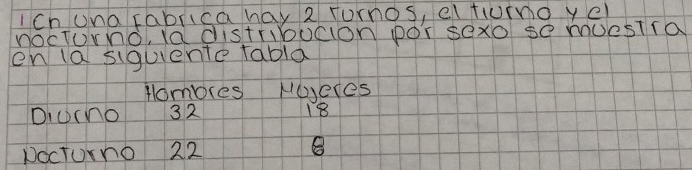 1 en una fabrica hay 2 turnos, el tiurno y el
nocturno, la distribucion por sexo se muestra
en la siguiente tabla
Hombres Mujeres
Diurno 32 18
Nocturno 22 8